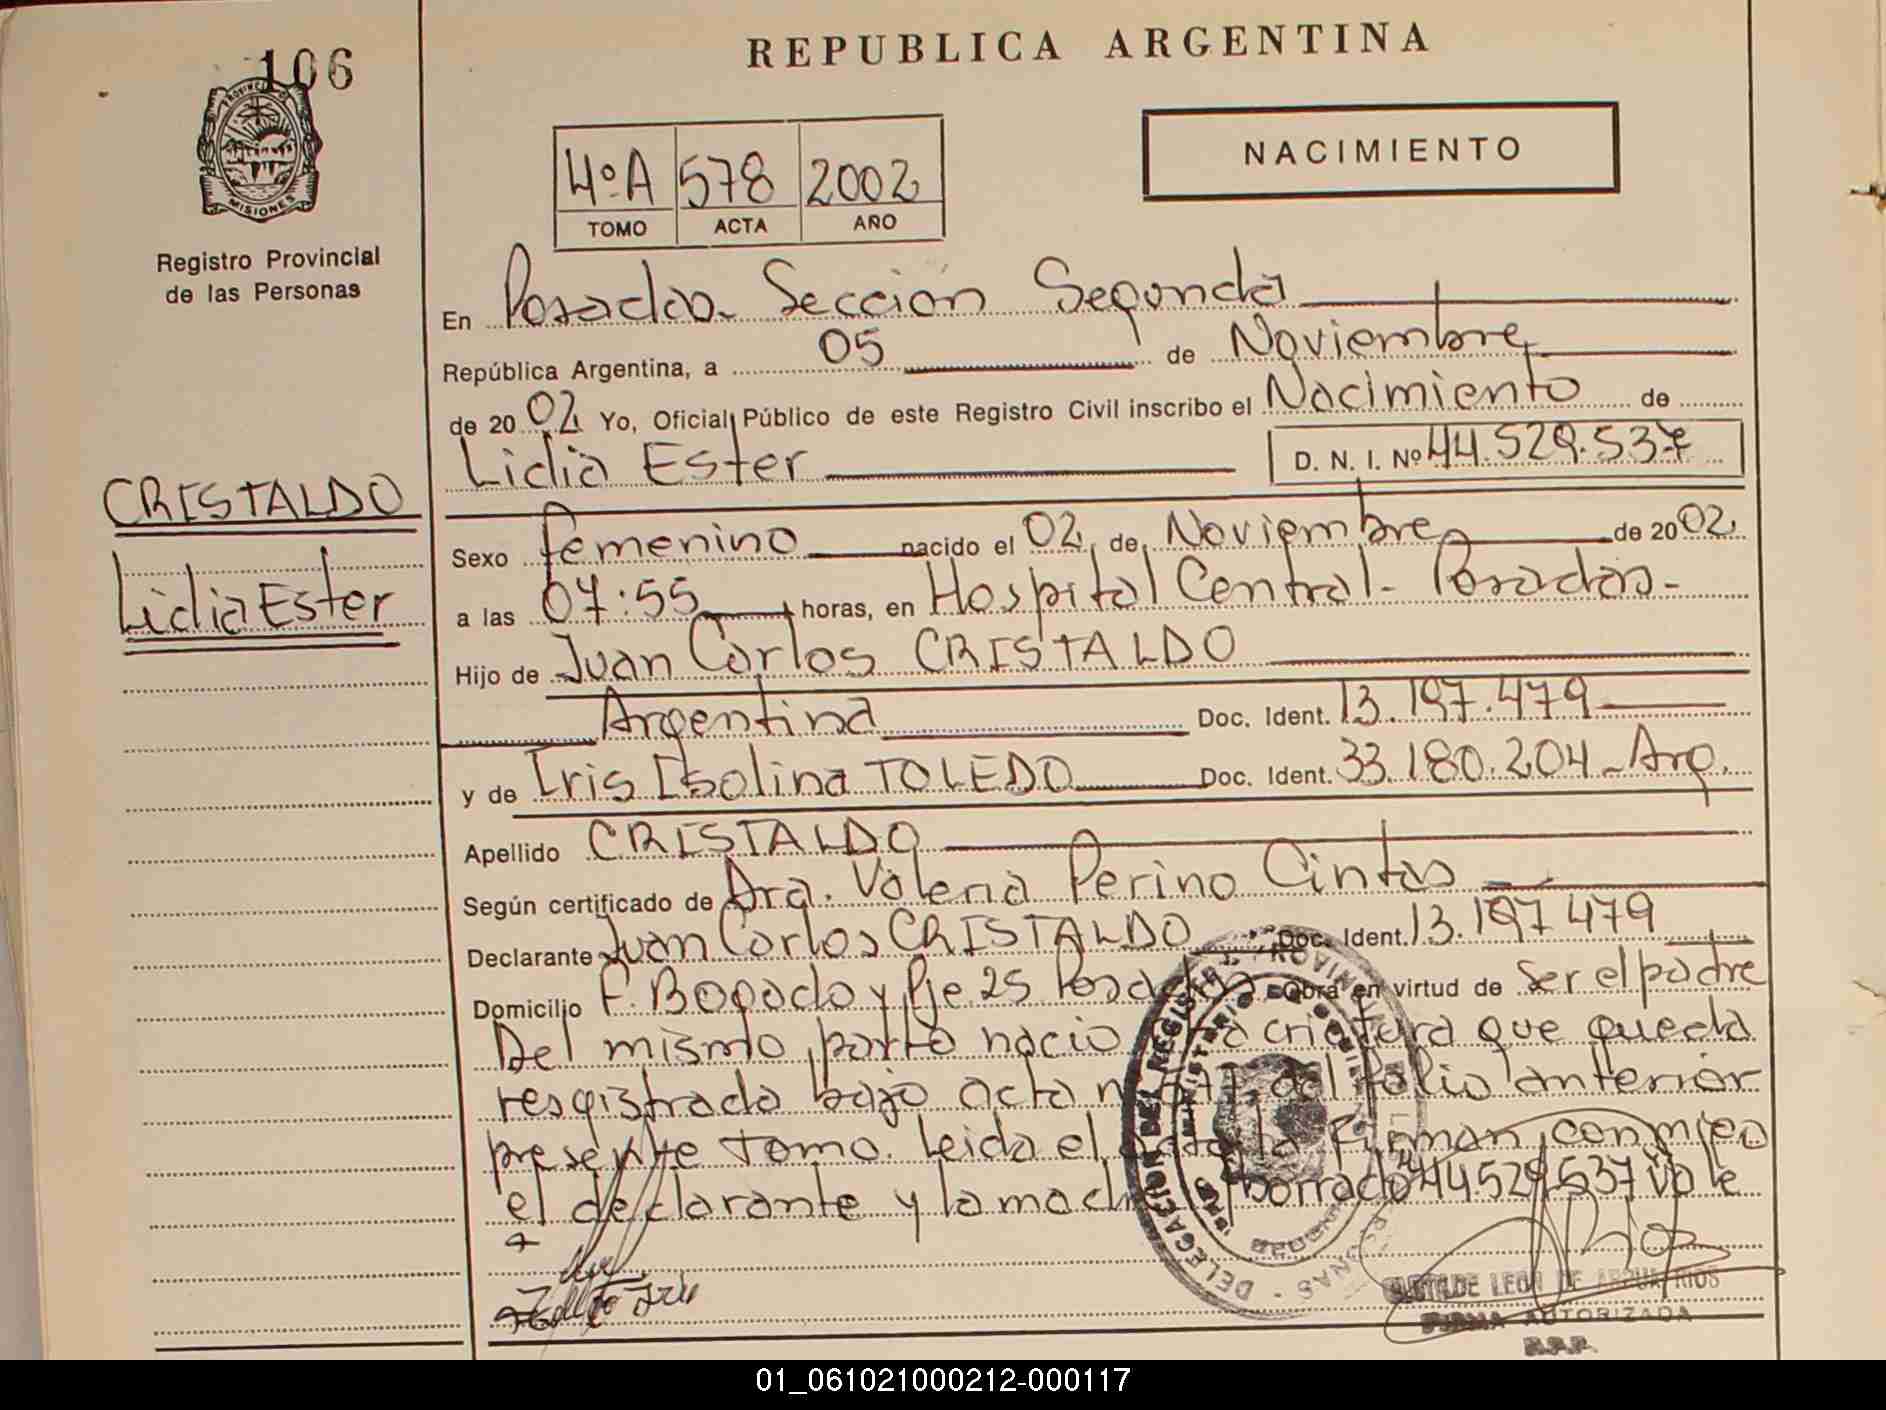 106
REPUBLICA ARGENTINA
PROVINCIA DE
MISIONES
Registro Provincial
de las Personas
4º A 578 2002
TOMO ACTA AÑO
NACIMIENTO
En Posadas - Sección Segunda
República Argentina, a 05 de Noviembre
de 2002 Yo, Oficial Público de este Registro Civil inscribo el Nacimiento de
Lidia Ester D. N. I. Nº 44.529.537
CRISTALDO
Lidia Ester
Sexo femenino nacido el 02 de Noviembre de 2002
a las 07:55 horas, en Hospital Central - Posadas -
Hijo de Juan Carlos CRISTALDO
Argentina Doc. Ident. 13.197.479
y de Iris Isolina TOLEDO Doc. Ident. 33.180.204 - Arg.
Apellido CRISTALDO
Según certificado de Dra. Valeria Perino Cintas
Declarante Juan Carlos CRISTALDO Doc. Ident. 13.197 479
Domicilio F. Bogado y Pje 25 Posadas Obra en virtud de Ser el padre
Del mismo parto nacio criatura que queda
resgistrada bajo acta del folio anterior
presente tomo. Leida el acta la Firman conmigo
el declarante y la madre borrado 44.529.537 Vale
DELEGACION DEL REGISTRO PROVINCIAL
LEON DE RIOS
FIRMA AUTORIZADA
R.P.P.
01_061021000212-000117